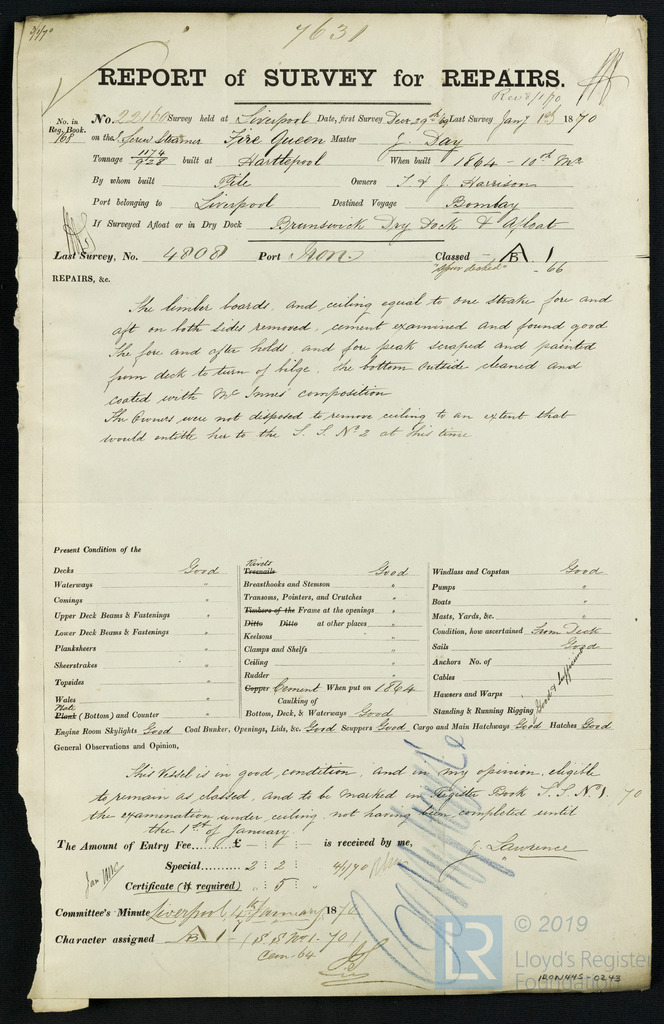 7631
REPORT of SURVEY for REPAIRS.
Rec 3/1/70
No. in Reg. Book. No. 22160 Survey held at Liverpool Date, first Survey Decr 29th /69 Last Survey Jany 1st 1870
168 on the Screw Steamer Fire Queen Master J. Day
Tonnage 1174 / 928 built at Hartlepool When built 1864 - 10th Mo
By whom built Pile Owners T & J. Harrison
Port belonging to Liverpool Destined Voyage Bombay
If Surveyed Afloat or in Dry Dock Brunswick Dry Dock & Afloat
Last Survey, No. 4808 Port Iron Classed A B 1
"Spar decked" - 66
REPAIRS, &c.
The limber boards, and ceiling equal to one strake fore and
aft on both sides removed, cement examined and found good
The fore and after holds, and fore peak scraped and painted
from deck to turn of bilge. The bottom outside cleaned and
coated with Mc Innes' composition
The Owners were not disposed to remove ceiling to an extent that
would entitle her to the S. S. No 2 at this time
Present Condition of the
Decks Good
Waterways "
Comings "
Upper Deck Beams & Fastenings "
Lower Deck Beams & Fastenings "
Planksheers "
Sheerstrakes "
Topsides "
Wales "
Plate
Plank (Bottom) and Counter "
Rivets
Treenails Good
Breasthooks and Stemson "
Transoms, Pointers, and Crutches "
Timbers of the Frame at the openings "
Ditto Ditto at other places "
Keelsons "
Clamps and Shelfs "
Ceiling "
Rudder "
Copper Cement When put on 1864
Caulking of
Bottom, Deck, & Waterways Good
Windlass and Capstan Good
Pumps "
Boats "
Masts, Yards, &c. "
Condition, how ascertained from Deck
Sails Good
Anchors No. of
Cables
Hawsers and Warps
Standing & Running Rigging
Good & sufficient
Engine Room Skylights Good Coal Bunker, Openings, Lids, &c. Good Scuppers Good Cargo and Main Hatchways Good Hatches Good
General Observations and Opinion,
This Vessel is in good condition, and in my opinion eligible
to remain as classed, and to be marked in Register Book S. S. No 1. 70
the examination under ceiling not having been completed until
the 1st of January
The Amount of Entry Fee...... £ - : " : - is received by me,
Special...... 2 : 2 : 4/1/70
J. Lawrence
Certificate (if required) " : 5 : "
Committee's Minute Liverpool 4th January 1870
Character assigned A B 1 - (S.S. No 1. 70)
Cem 64
LR © 2019
Lloyd's Register
Foundation
IRON445-0243